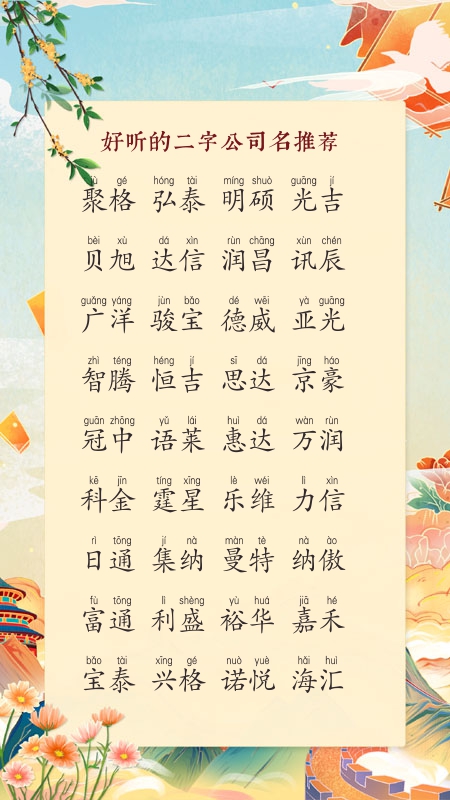 好听的二字公司名推荐
jù gé hóng tài míng shuò guāng jí
聚格 弘泰 明硕 光吉
bèi xù dá xìn rùn chāng xùn chén
贝旭 达信 润昌 讯辰
guǎng yáng jùn bǎo dé wēi yà guāng
广洋 骏宝 德威 亚光
zhì téng héng jí sī dá jīng háo
智腾 恒吉 思达 京豪
guān zhōng yǔ lái huì dá wàn rùn
冠中 语莱 惠达 万润
kē jīn tíng xīng lè wéi lì xìn
科金 霆星 乐维 力信
rì tōng jí nà màn tè nà ào
日通 集纳 曼特 纳傲
fù tōng lì shèng yù huá jiā hé
富通 利盛 裕华 嘉禾
bǎo tài xīng gé nuò yuè hǎi huì
宝泰 兴格 诺悦 海汇